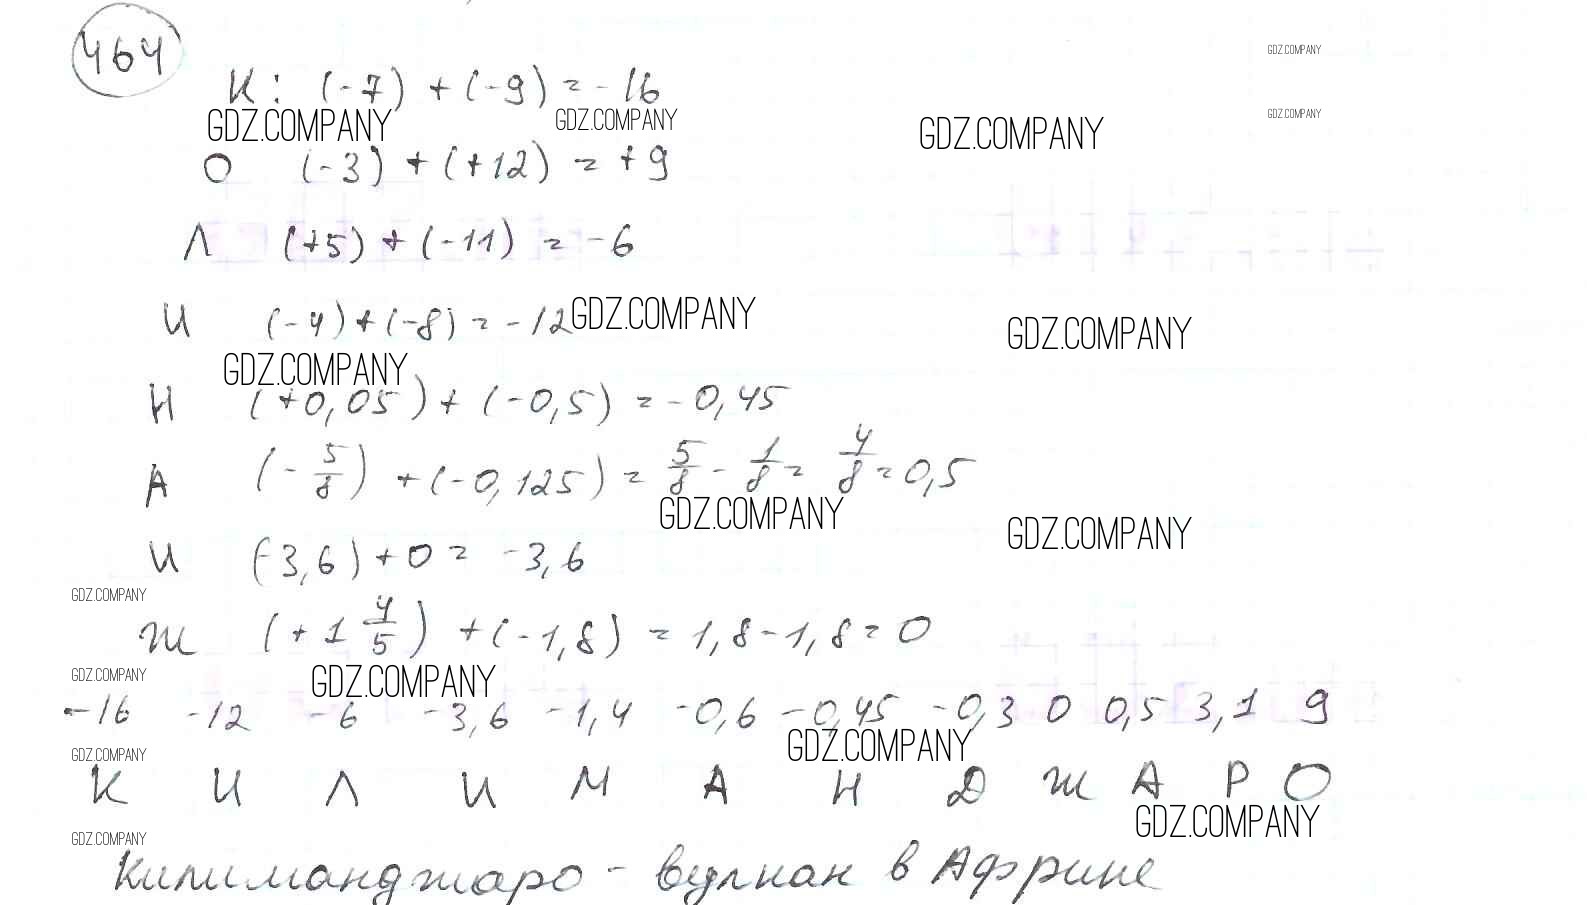 464
GDZ.COMPANY
К: (-7) + (-9) = -16
GDZ.COMPANY GDZ.COMPANY GDZ.COMPANY GDZ.COMPANY
О (-3) + (+12) = +9
Л (+5) + (-11) = -6
И (-4) + (-8) = -12 GDZ.COMPANY GDZ.COMPANY
GDZ.COMPANY
Н (+0,05) + (-0,5) = -0,45
А (- 5/8) + (-0,125) = 5/8 - 1/8 = 4/8 = 0,5
GDZ.COMPANY GDZ.COMPANY
И (-3,6) + 0 = -3,6
GDZ.COMPANY
Ж (+1 4/5) + (-1,8) = 1,8 - 1,8 = 0
GDZ.COMPANY GDZ.COMPANY
-16 -12 -6 -3,6 -1,4 -0,6 -0,45 -0,3 0 0,5 3,1 9
GDZ.COMPANY GDZ.COMPANY
К И Л И М А Н Д Ж А Р О
GDZ.COMPANY GDZ.COMPANY
Килиманджаро - вулкан в Африке